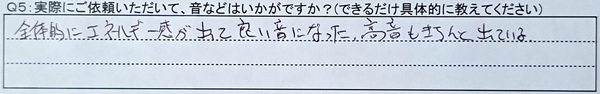 Q5：実際にご依頼いただいて、音などはいかがですか？（できるだけ具体的に教えてください）
全体的にエネルギー感が出て良い音になった，高音もきちんと出ている